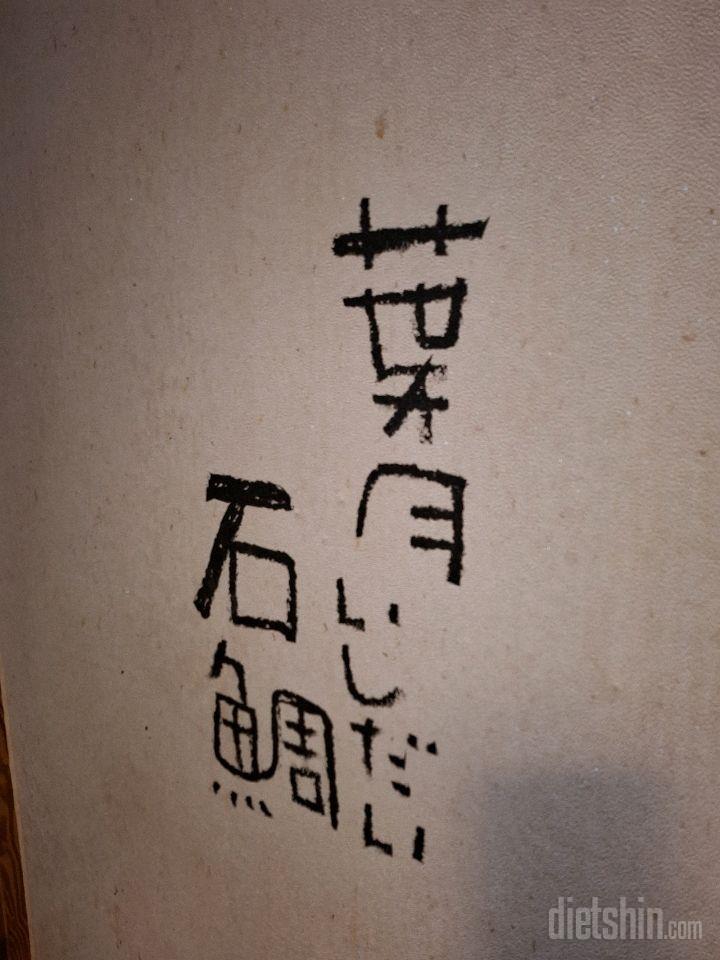 葉月いしだい
石鯛
dietshin.com